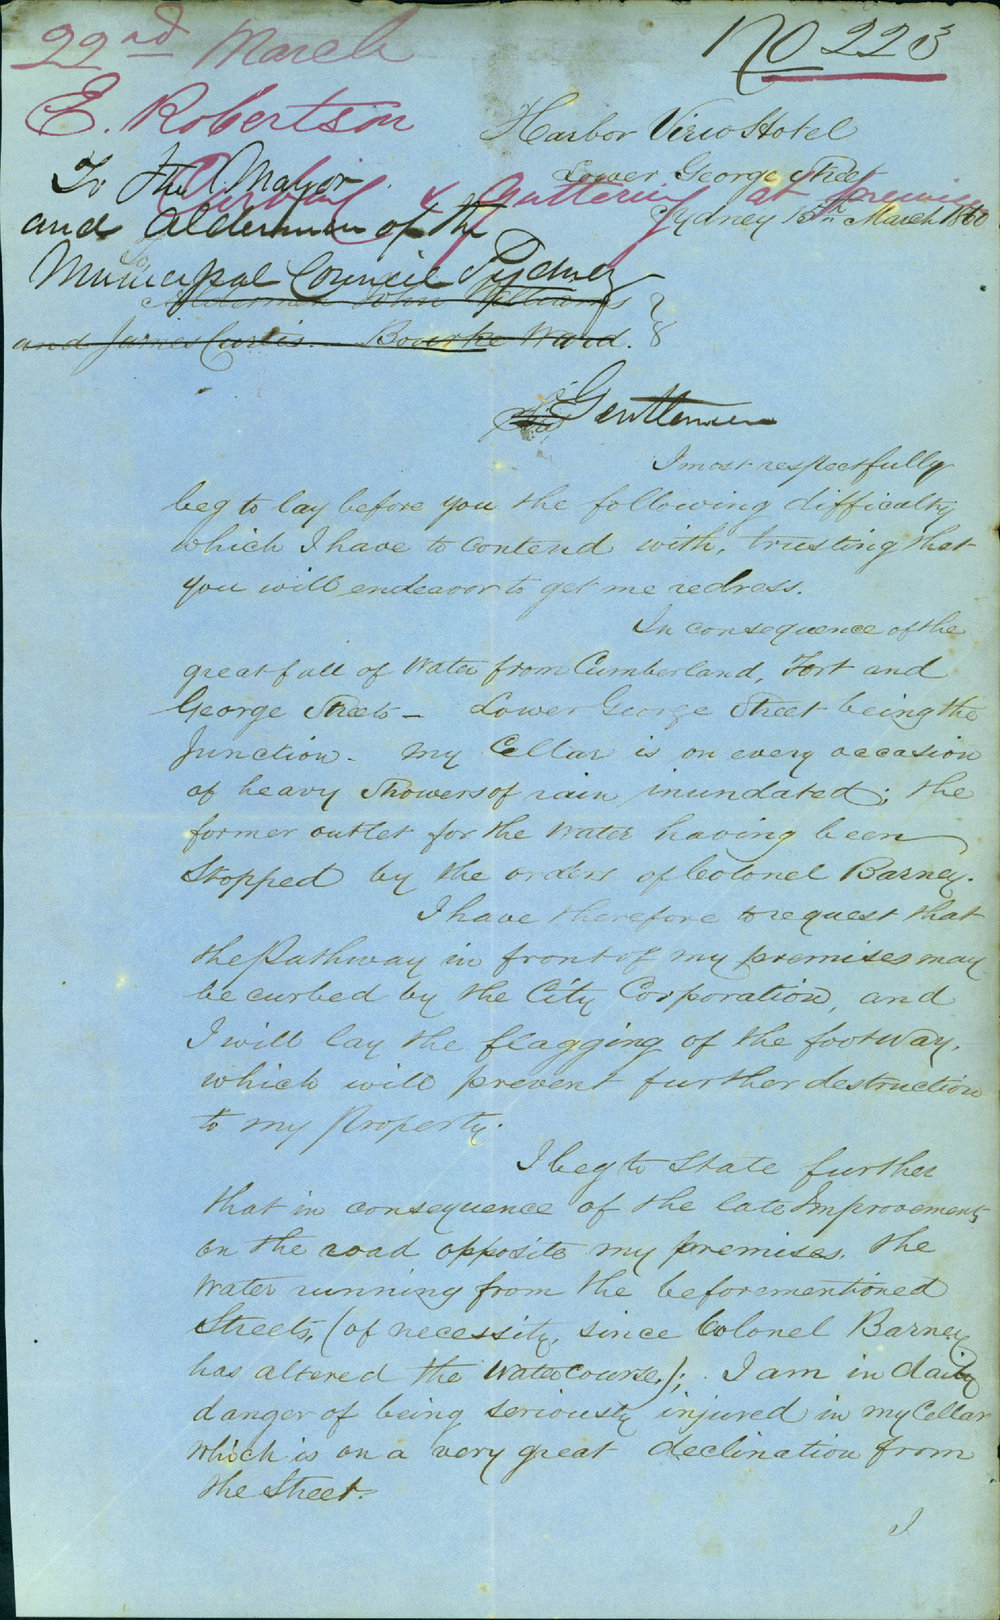 22nd March
No 223
E. Robertson
Curbing & Guttering at premises
Harbor View Hotel
Lower George Street
Sydney 15th March 1860
To the Mayor
and Aldermen of the
Municipal Council Sydney
To
Aldermen John Williams
and James Curtis. Bourke Ward.
Gentlemen
I most respectfully
beg to lay before you the following difficulty
which I have to contend with, trusting that
you will endeavor to get me redress.
In consequence of the
great fall of Water from Cumberland, Fort and
George Streets – Lower George Street being the
Junction – My Cellar is on every occasion
of heavy Showers of rain inundated; the
former outlet for the Water having been
Stopped by the orders of Colonel Barney.
I have therefore to request that
the Pathway in front of my premises may
be curbed by the City Corporation, and
I will lay the flagging of the footway,
which will prevent further destruction
to my Property.
I beg to State further
that in consequence of the late Improvements
on the road opposite my premises. the
Water running from the beforementioned
Streets, (of necessity, since Colonel Barney
has altered the Watercourse,); I am in daily
danger of being seriously injured in my Cellar
which is on a very great declination from
the Street.
I